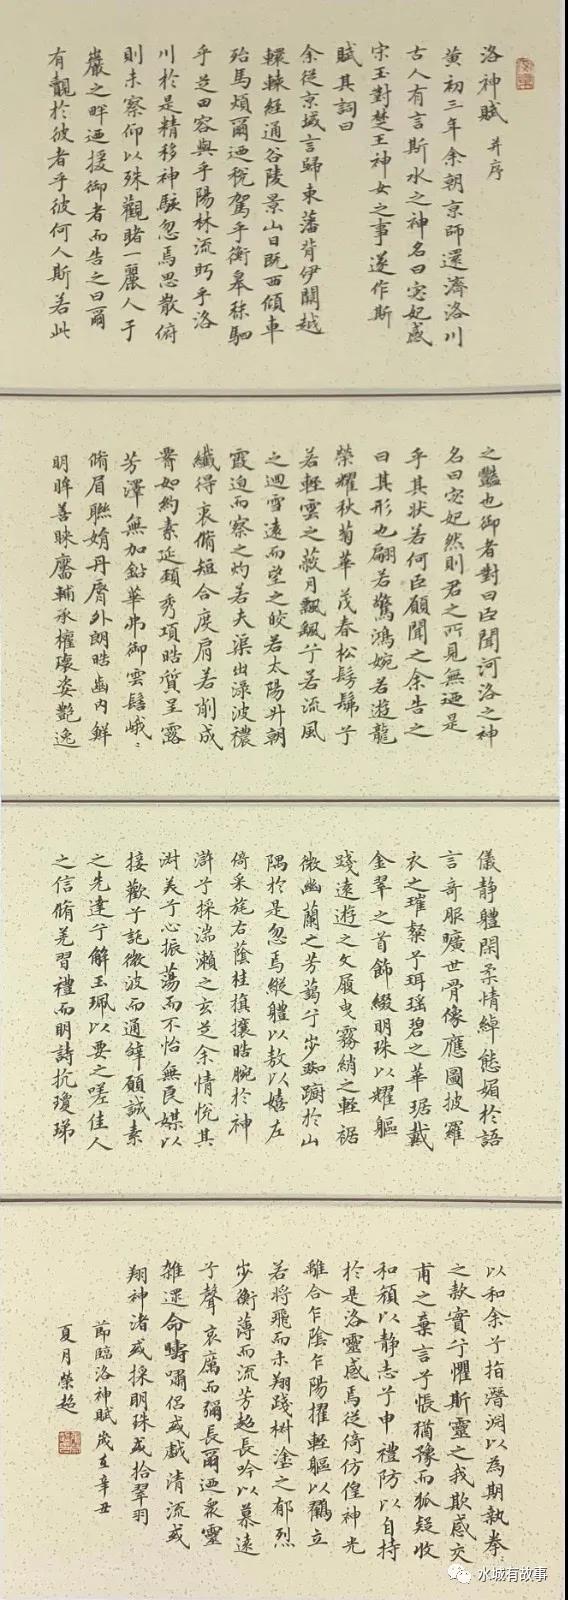 洛神賦 并序
黃初三年余朝京師還濟洛川
古人有言斯水之神名曰宓妃感
宋玉對楚王神女之事遂作斯
賦其詞曰
余從京域言歸東藩背伊闕越
轘轅經通谷陵景山日既西傾車
殆馬煩爾迺稅駕乎衡皋秣駟
乎芝田容與乎陽林流眄乎洛
川於是精移神駭忽焉思散俯
則未察仰以殊觀睹一麗人于
巖之畔迺援御者而告之曰爾
有覿於彼者乎彼何人斯若此
之豔也御者對曰臣聞河洛之神
名曰宓妃然則君之所見無迺是
乎其狀若何臣願聞之余告之
曰其形也翩若驚鴻婉若遊龍
榮耀秋菊華茂春松髣髴兮
若輕雲之蔽月飄飄兮若流風
之迴雪遠而望之皎若太陽升朝
霞迫而察之灼若夫渠出淥波襛
纖得衷脩短合度肩若削成
如約素延頸秀項皓質呈露
芳澤無加鉛華弗御雲髻峨〻
脩眉聯娟丹脣外朗皓齒內鮮
明眸善睞靨輔承權瓌姿艷逸
儀静體閑柔情綽態媚於語
言奇服曠世骨像應圖披羅
衣之璀粲兮珥瑤碧之華琚戴
金翠之首飾綴明珠以耀軀
踐遠遊之文履曳霧綃之輕裾
微幽蘭之芳藹兮步踟躕於山
隅於是忽焉縱體以敖以嬉左
倚采旄右蔭桂旗攘皓腕於神
滸兮採湍瀨之玄芝余情悅其
淑美兮心振蕩而不怡無良媒以
接歡兮託微波而通辭願誠素
之先達兮解玉珮以要之嗟佳人
之信脩羌習禮而明詩抗瓊珶
以和余兮指潛淵以為期執拳〻
之款實兮懼斯靈之我欺感交
甫之棄言兮悵猶豫而狐疑收
和顏以静志兮申禮防以自持
於是洛靈感焉徙倚仿偟神光
離合乍陰乍陽擢輕軀以鶴立
若將飛而未翔踐椒塗之郁烈
步衡薄而流芳超長吟以慕遠
兮聲哀厲而彌長爾迺衆靈
雜遝命疇嘯侶或戲清流或
翔神渚或採明珠或拾翠羽
節臨洛神賦歲在辛丑
夏月榮超
水城有故事